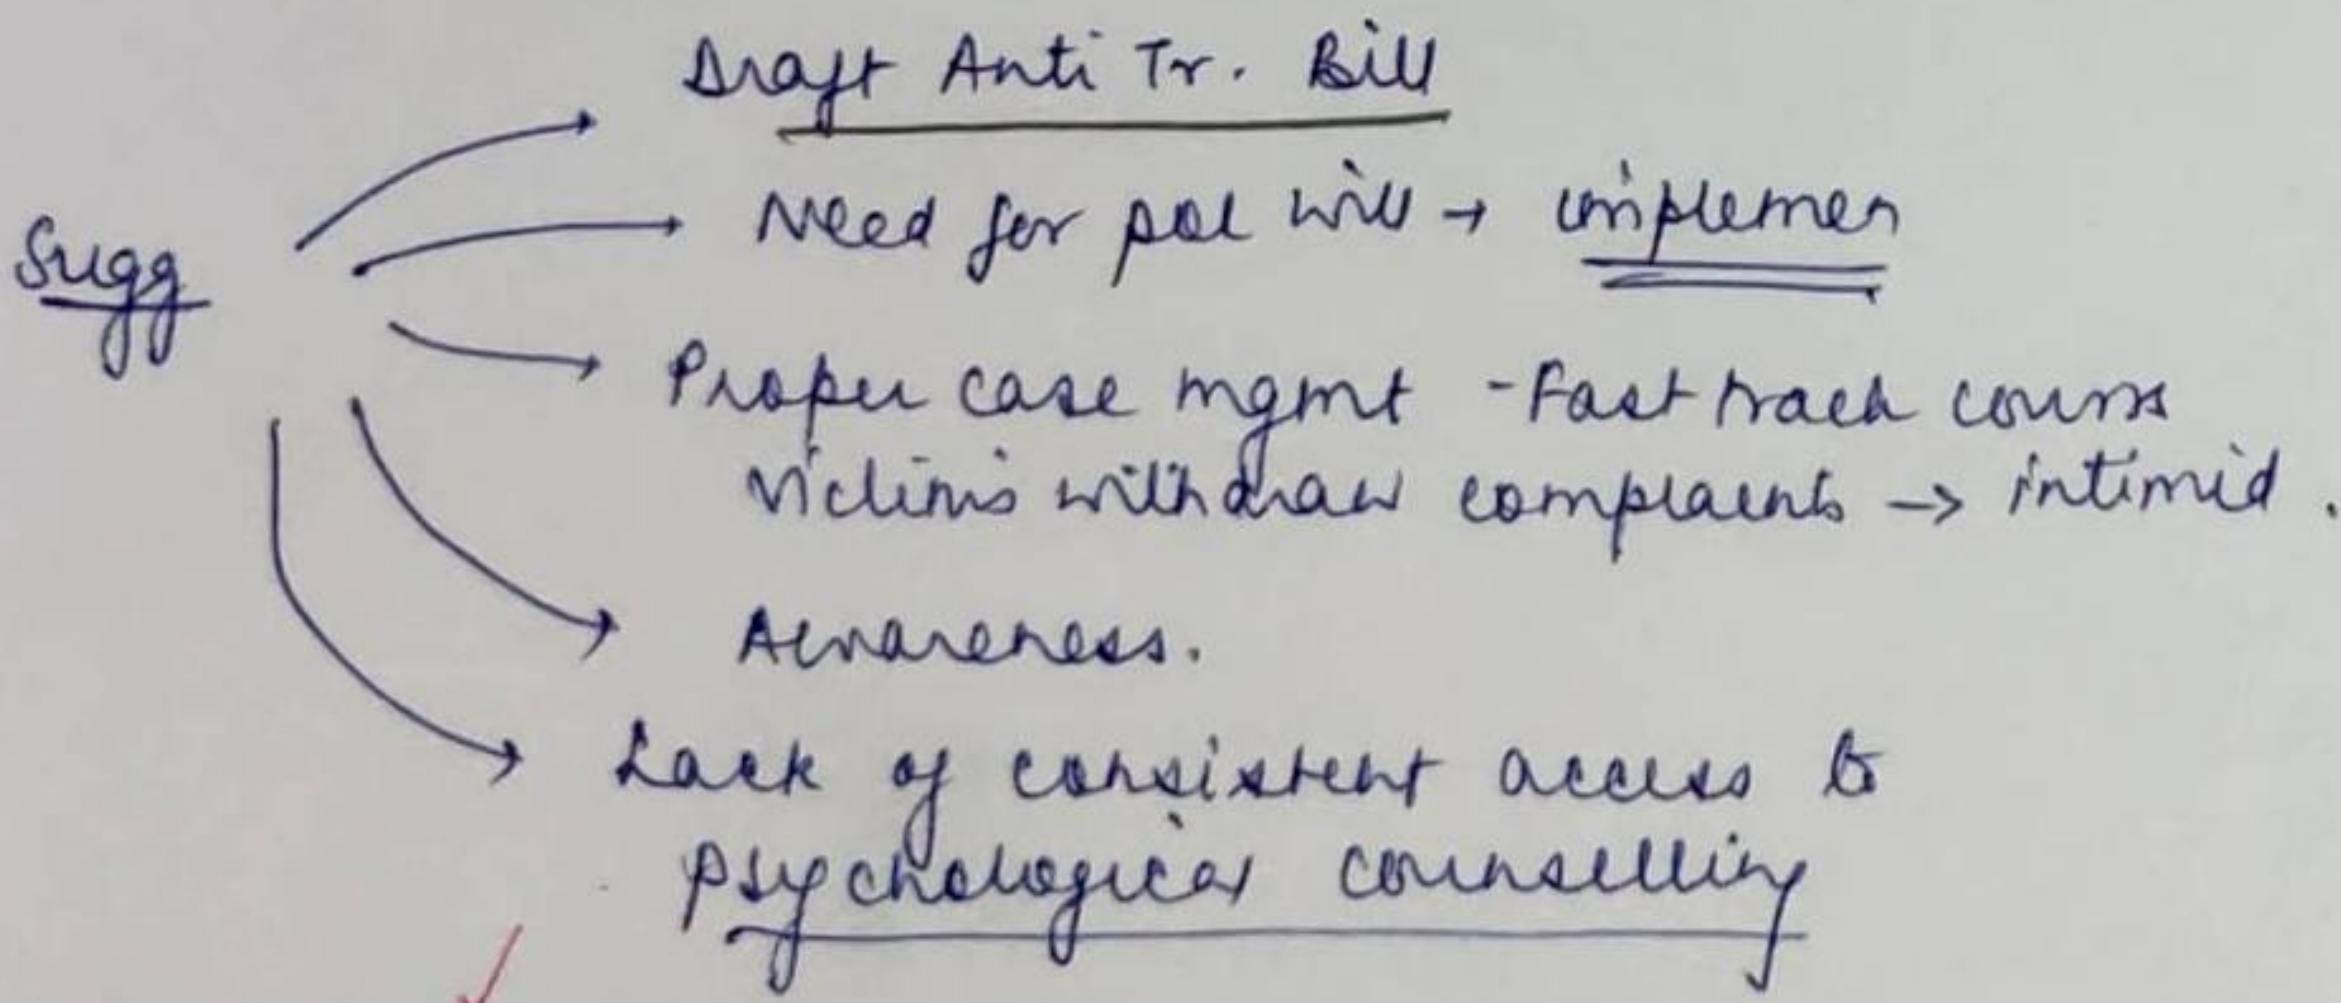 Draft Anti Tr. Bill
Sugg
Need for pol will → implemen
Proper case mgmt - Fast track courts
victims withdraw complaints → intimid.
Awareness.
Lack of consistent access to
psychological counselling